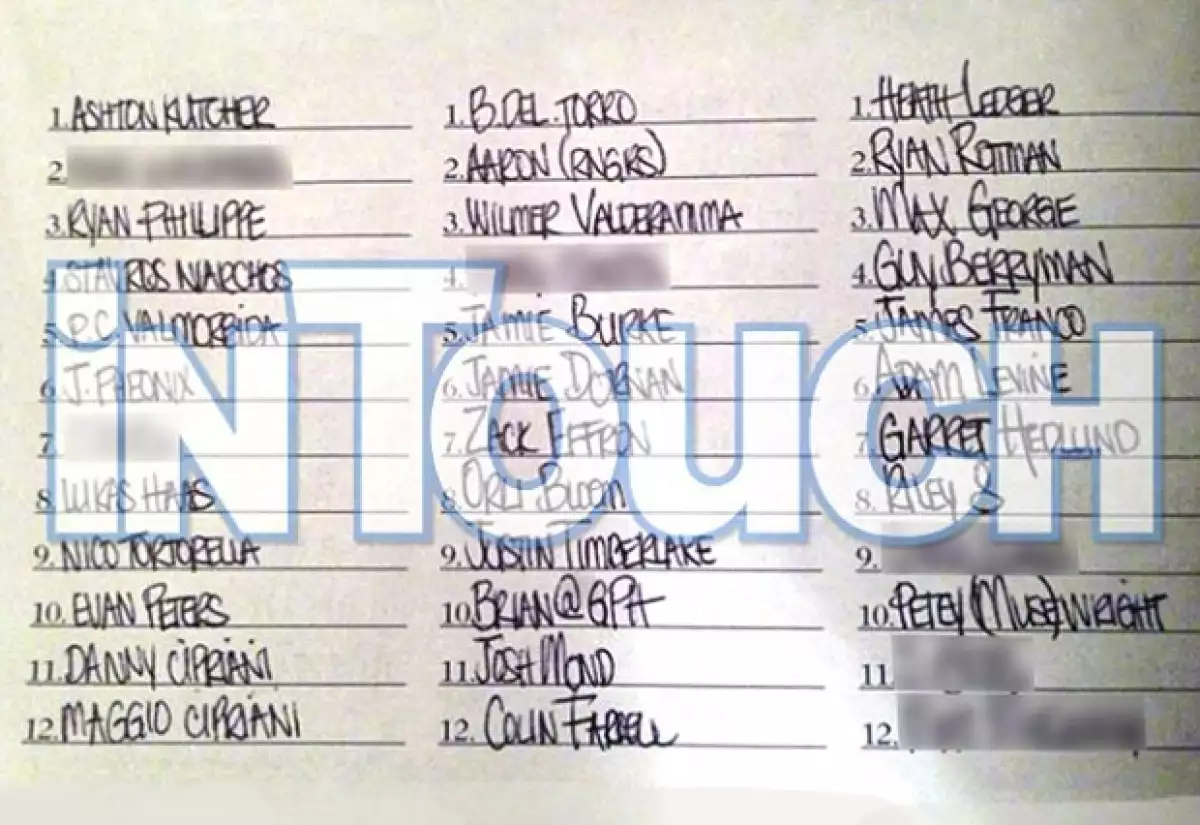 1. ASHTON KUTCHER
2.
3. RYAN PHILLIPPE
4. STAVROS NIARCHOS
5. P.C. VALMORBIDA
6. J. PHEONIX
7.
8. LUKAS HAAS
9. NICO TORTORELLA
10. EVAN PETERS
11. DANNY CIPRIANI
12. MAGGIO CIPRIANI
1. B. DEL TORRO
2. AARON (RNGRS)
3. WILMER VALDERAMMA
4.
5. JAMIE BURKE
6. JAMIE DORNAN
7. ZACK EFFRON
8. ORLI BLOOM
9. JUSTIN TIMBERLAKE
10. BRIAN @ GPH
11. JOSH MOND
12. COLIN FARRELL
1. HEATH LEDGER
2. RYAN ROTTMAN
3. MAX GEORGE
4. GUY BERRYMAN
5. JAMES FRANCO
6. ADAM LEVINE
7. GARRET HEDLUND
8. RILEY S
9.
10. PETEY (MUSE) WRIGHT
11.
12.
iN TOUCH